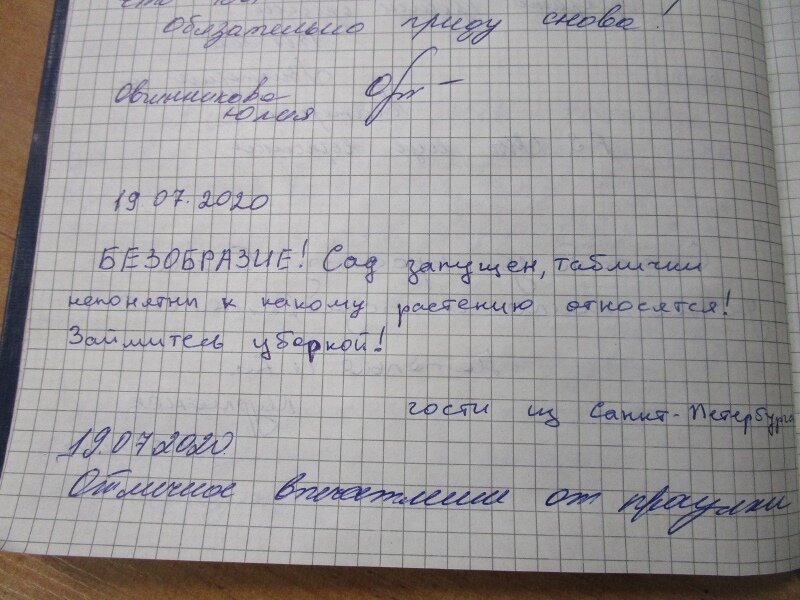 обязательно приду снова!
Овчинникова
Юлия
19.07.2020
БЕЗОБРАЗИЕ! Сад запущен, таблички
непонятны к какому растению относятся!
Займитесь уборкой!
гости из Санкт-Петербурга
19.07.2020
Отличное впечатление от